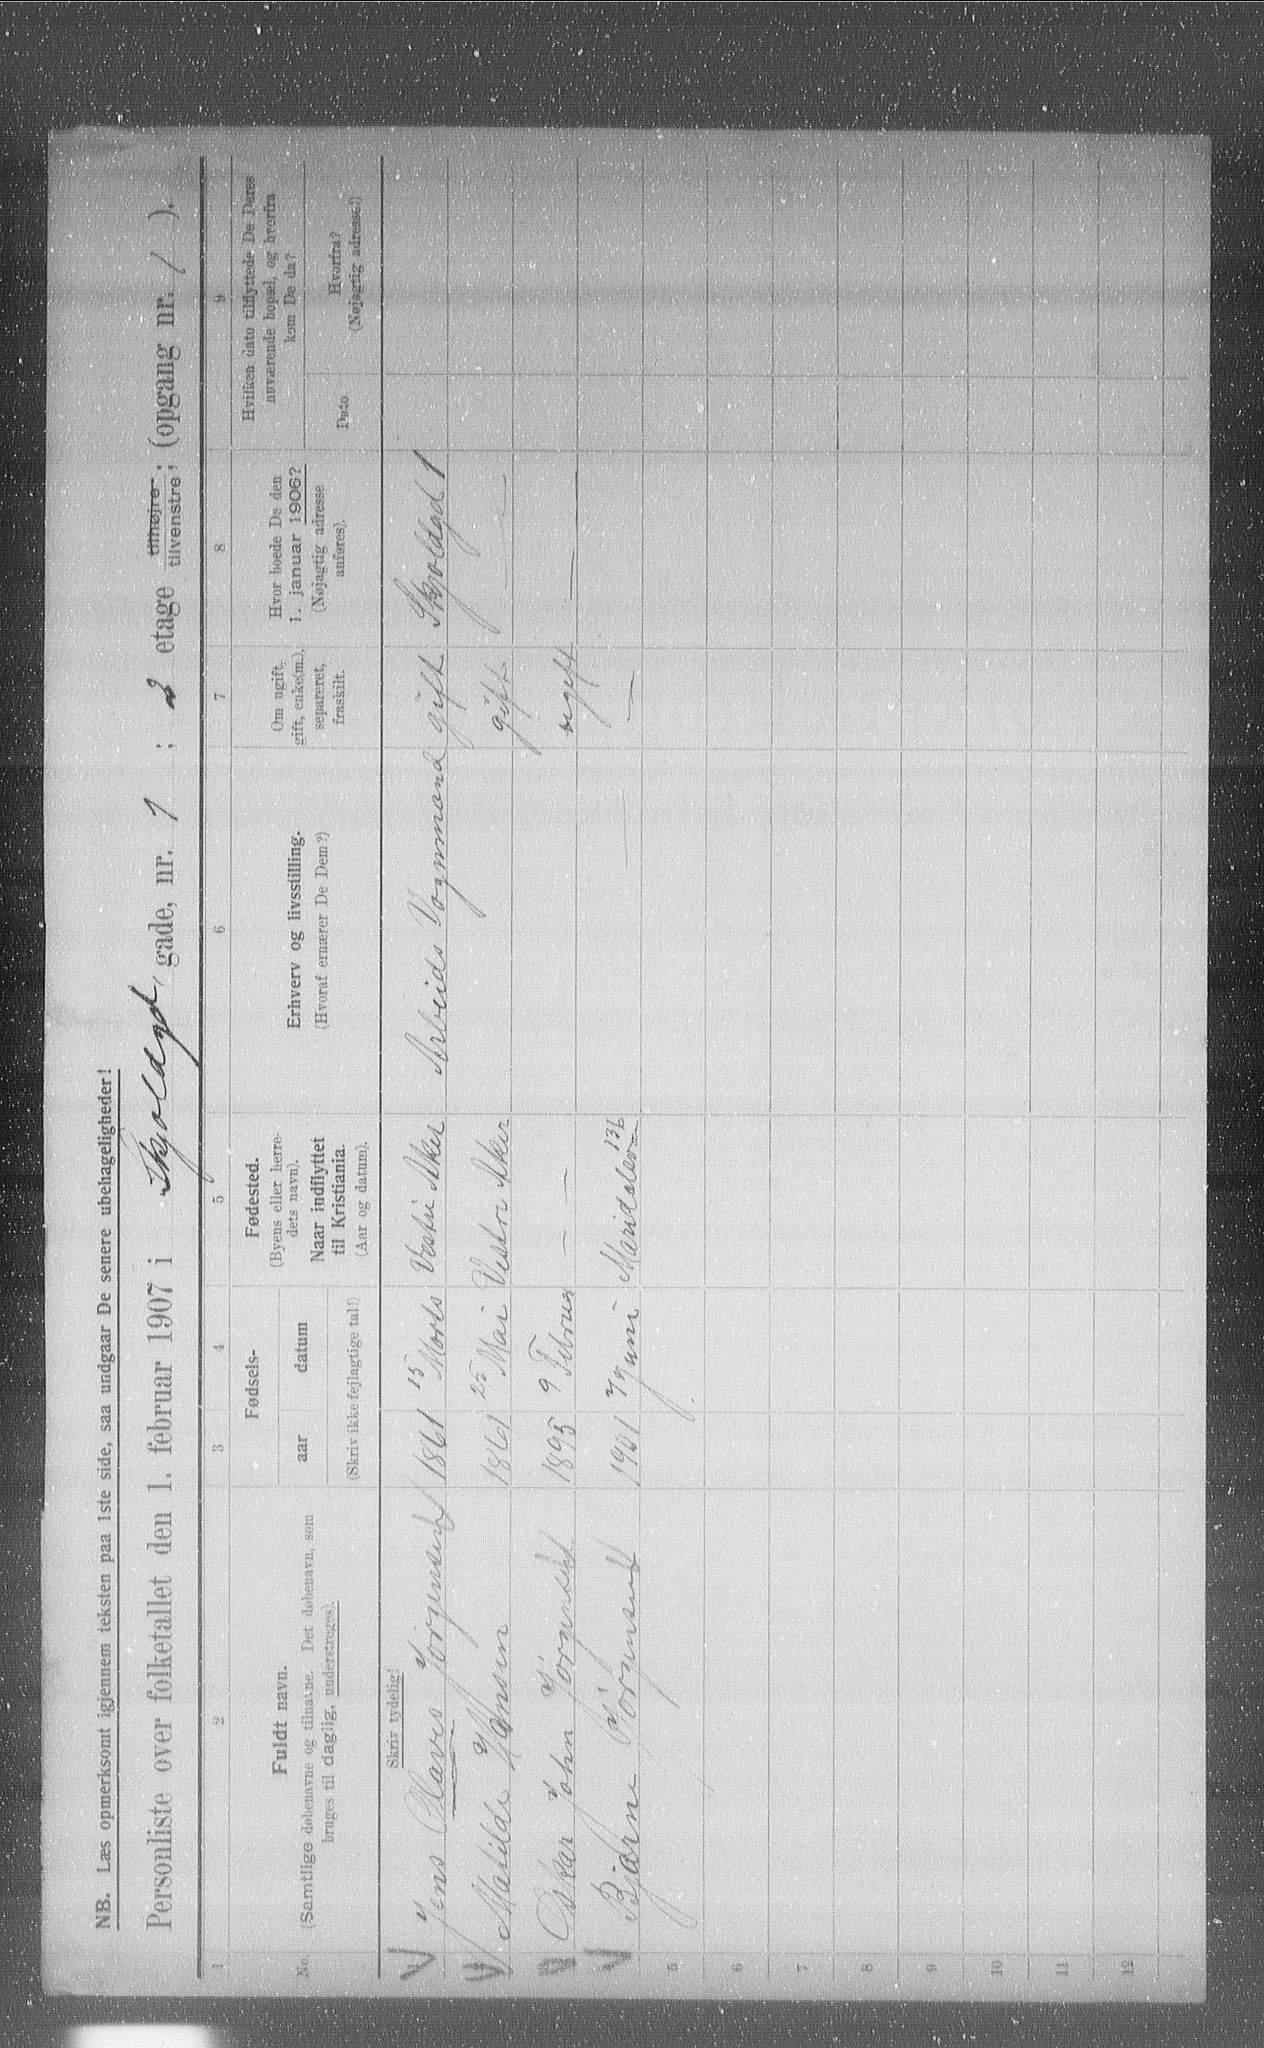 NB. Læs opmerksomt igjennem teksten paa 1ste side, saa undgaar De senere ubehageligheder!
Personliste over folketallet den 1. februar 1907 i Skjoldgd, gade, nr. 1 ; 3 etage tilhøjre, tilvenstre; (opgang nr. / ).
1 2 3 4 5 6 7 8 9
No. Fuldt navn. (Samtlige døbenavne og tilnavne. Det døbenavn, som bruges til daglig, understreges).
Fødsels-
aar datum
(Skriv ikke fejlagtige tal!)
Fødested.
(Byens eller herredets navn).
Naar indflyttet til Kristiania.
(Aar og datum).
Erhverv og livsstilling.
(Hvoraf ernærer De Dem?)
Om ugift, gift, enke(m.), separeret, fraskilt.
Hvor boede De den 1. januar 1906?
(Nøjagtig adresse anføres).
Hvilken dato tilflyttede De Deres nuværende bopæl, og hvorfra kom De da?
Dato
Hvorfra?
(Nøjagtig adresse!)
Skriv tydelig!
Jens Olaves Jørgensen 1861 15 Marts Vestre Aker Arbeids Vognmand gift Skjoldgd 1
Matilde Hansen 1861 25 Mai Vestre Aker gift — —
3 Oskar John Jørgensen 1895 9 Februar — — ugift — —
4 Bjarne Jørgensen 1901 7 Juni Maridalsvn 136 — —
5
6
7
8
9
10
11
12